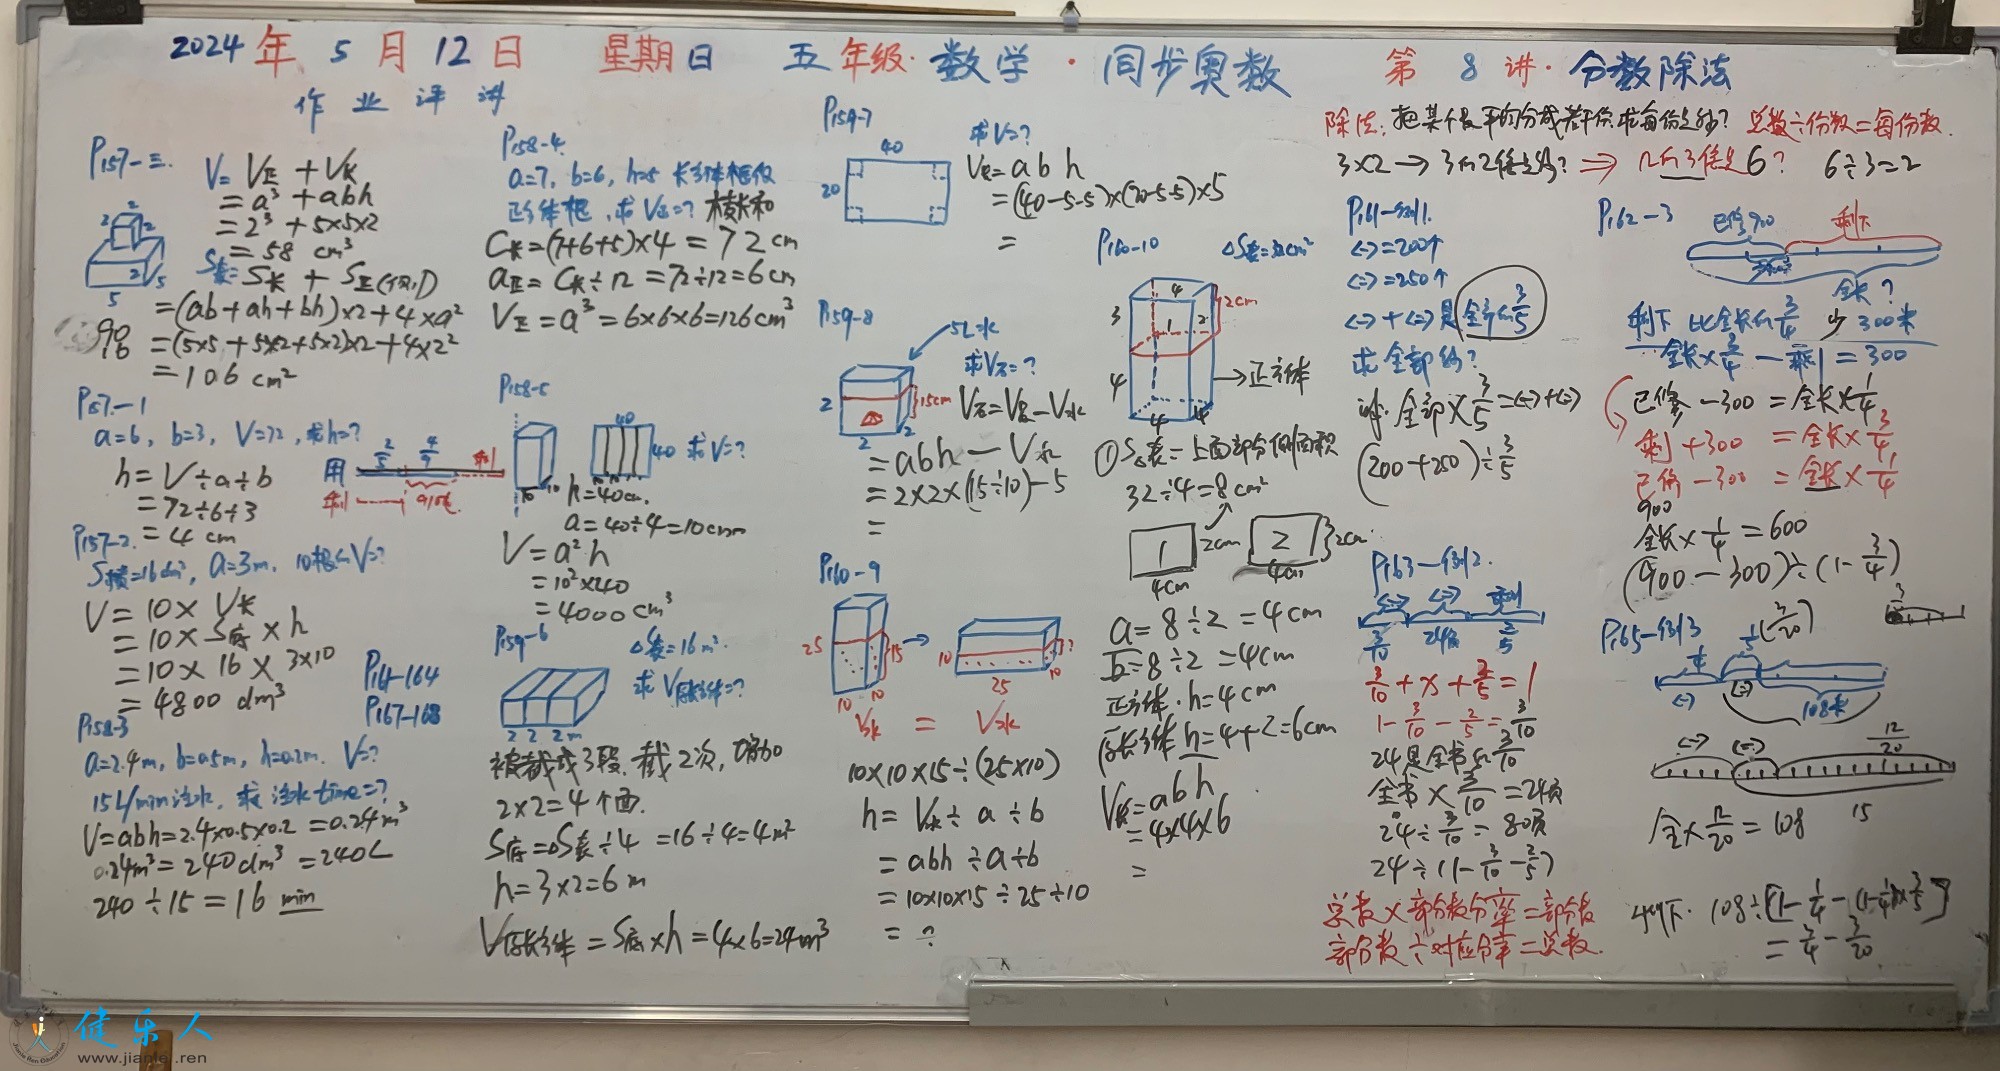 2024年5月12日 星期日 五年级·数学·同步奥数 第8讲·分数除法
作业评讲
P157-三.
V=V正+V长
=a³+abh
=2³+5×5×2
=58 cm³
2 2 2 2 5 5
S表=S长+S正(侧)
=(ab+ah+bh)×2+4×a²
=(5×5+5×2+5×2)×2+4×2²
=106 cm²
90
16
P157-1
a=6, b=3, V=72, 求h=?
h=V÷a÷b
=72÷6÷3
=4 cm
用 2/5 4/9 剩
剩
P157-2.
S横=16dm², a=3m, 10根 V=?
V=10×V长
=10×S底×h
=10×16×3×10
=4800 dm³
P161-164
P167-168
P158-3
a=2.4m, b=0.5m, h=0.2m. V=?
15L/min注水, 求注水time=?
V=abh=2.4×0.5×0.2=0.24m³
0.24m³=240dm³=240L
240÷15=16 min
P158-4
a=7, b=6, h=5 长方体框
正方体框, 求V正=? 棱长和
C长=(7+6+5)×4=72cm
a正=C长÷12=72÷12=6cm
V正=a³=6×6×6=126cm³
P158-5
40
40 求V=?
10 10
h=40cm.
a=40÷4=10cm
V=a²h
=10²×40
=4000cm³
P159-6
△S表=16m².
求V原长方体=?
2 2 2m
被截成3段. 截2次, 增加
2×2=4个面.
S底=△S表÷4=16÷4=4m²
h=3×2=6m
V原长方体=S底×h=4×6=24m³
P159-7
40
20
求V=?
V长=abh
=(40-5-5)×(20-5-5)×5
=
P159-8
5L水
求V石=?
2 15cm 2 2
V石=V总-V水
=abh-V水
=2×2×(15÷10)-5
=
P160-9
25 15 10 10
10 ? 25 10
V长 = V水
10×10×15÷(25×10)
h=V水÷a÷b
=abh÷a÷b
=10×10×15÷25÷10
= ?
P160-10
△S表=32cm²
3 4 1 2 2cm
4 4 4
正方体
①S表=上面部分侧面积
32÷4=8cm²
1 2cm 4cm
2 2cm 4cm
a=8÷2=4cm
b=8÷2=4cm
正方体.h=4cm
原长方体h=4+2=6cm
V长=abh
=4×4×6
=
除法: 把某个数平均分成若干份,求每份是多少? 总数÷份数=每份数.
3×2→3的2倍是多少?⇒几的3倍是6? 6÷3=2
P161-例1.
<一>=200个
<二>=250个
<一>+<二>是全部的3/5
求全部的?
全部×3/5=<一>+<二>
(200+250)÷3/5
P163-例2.
<一> <二> 剩
3/10 24页 2/5
3/10+x+2/5=1
1-3/10-2/5=3/10
24是全书的3/10
全书×3/10=24页
24÷3/10=80页
24÷(1-3/10-2/5)
总数×部分数分率=部分数
部分数÷对应分率=总数.
P162-3
已修900 剩下
全长?
剩下比全长的3/4少300米
全长×3/4-剩=300
已修-300=全长×1/4
剩+300=全长×3/4
已修-300=全长×1/4
900
全长×1/4=600
(900-300)÷(1-3/4)
P165-例3
1/4 1/5(3/20)
<一> <二> 108米
3
<一> <二> 12/20
15
全×12/20=108
剩下. 108÷[1-1/4-(1-1/4)×3/5]
=3/4-3/20
健乐人
www.jianle.ren